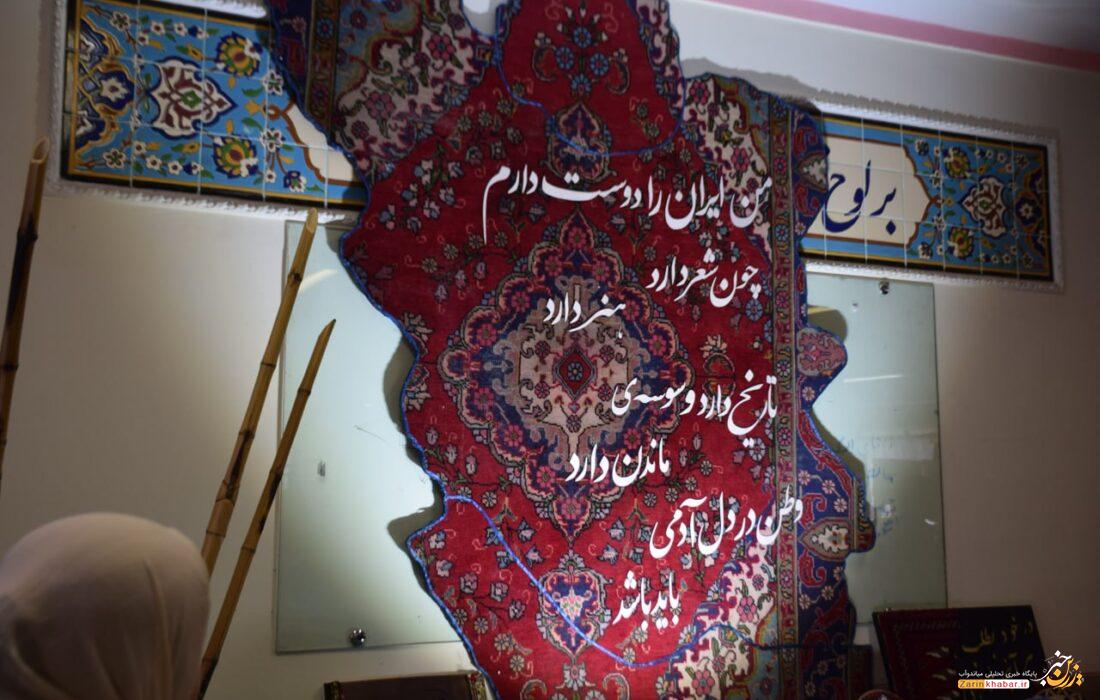 بر لوح
من ایران را دوست دارم
چون شعر دارد
هنر دارد
تاریخ دارد وسوسه‌ی
ماندن دارد
وطن در دل آدمی
باید باشد
در خود بطلب
زرین خبر
پایگاه خبری تحلیلی میاندوآب
Zarinkhabar.ir